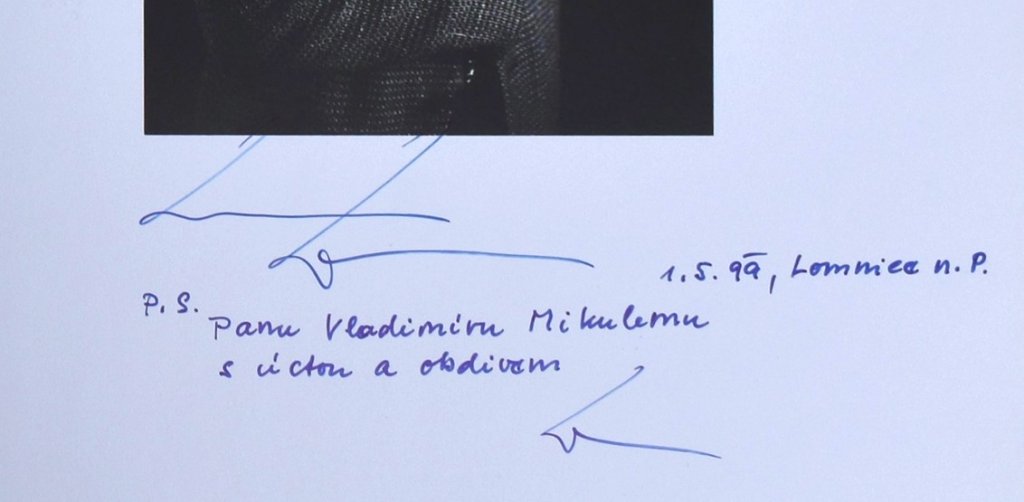 1.5.99, Lomnice n.P.
P.S.
Panu Vladimíru Mikulemu
s úctou a obdivem